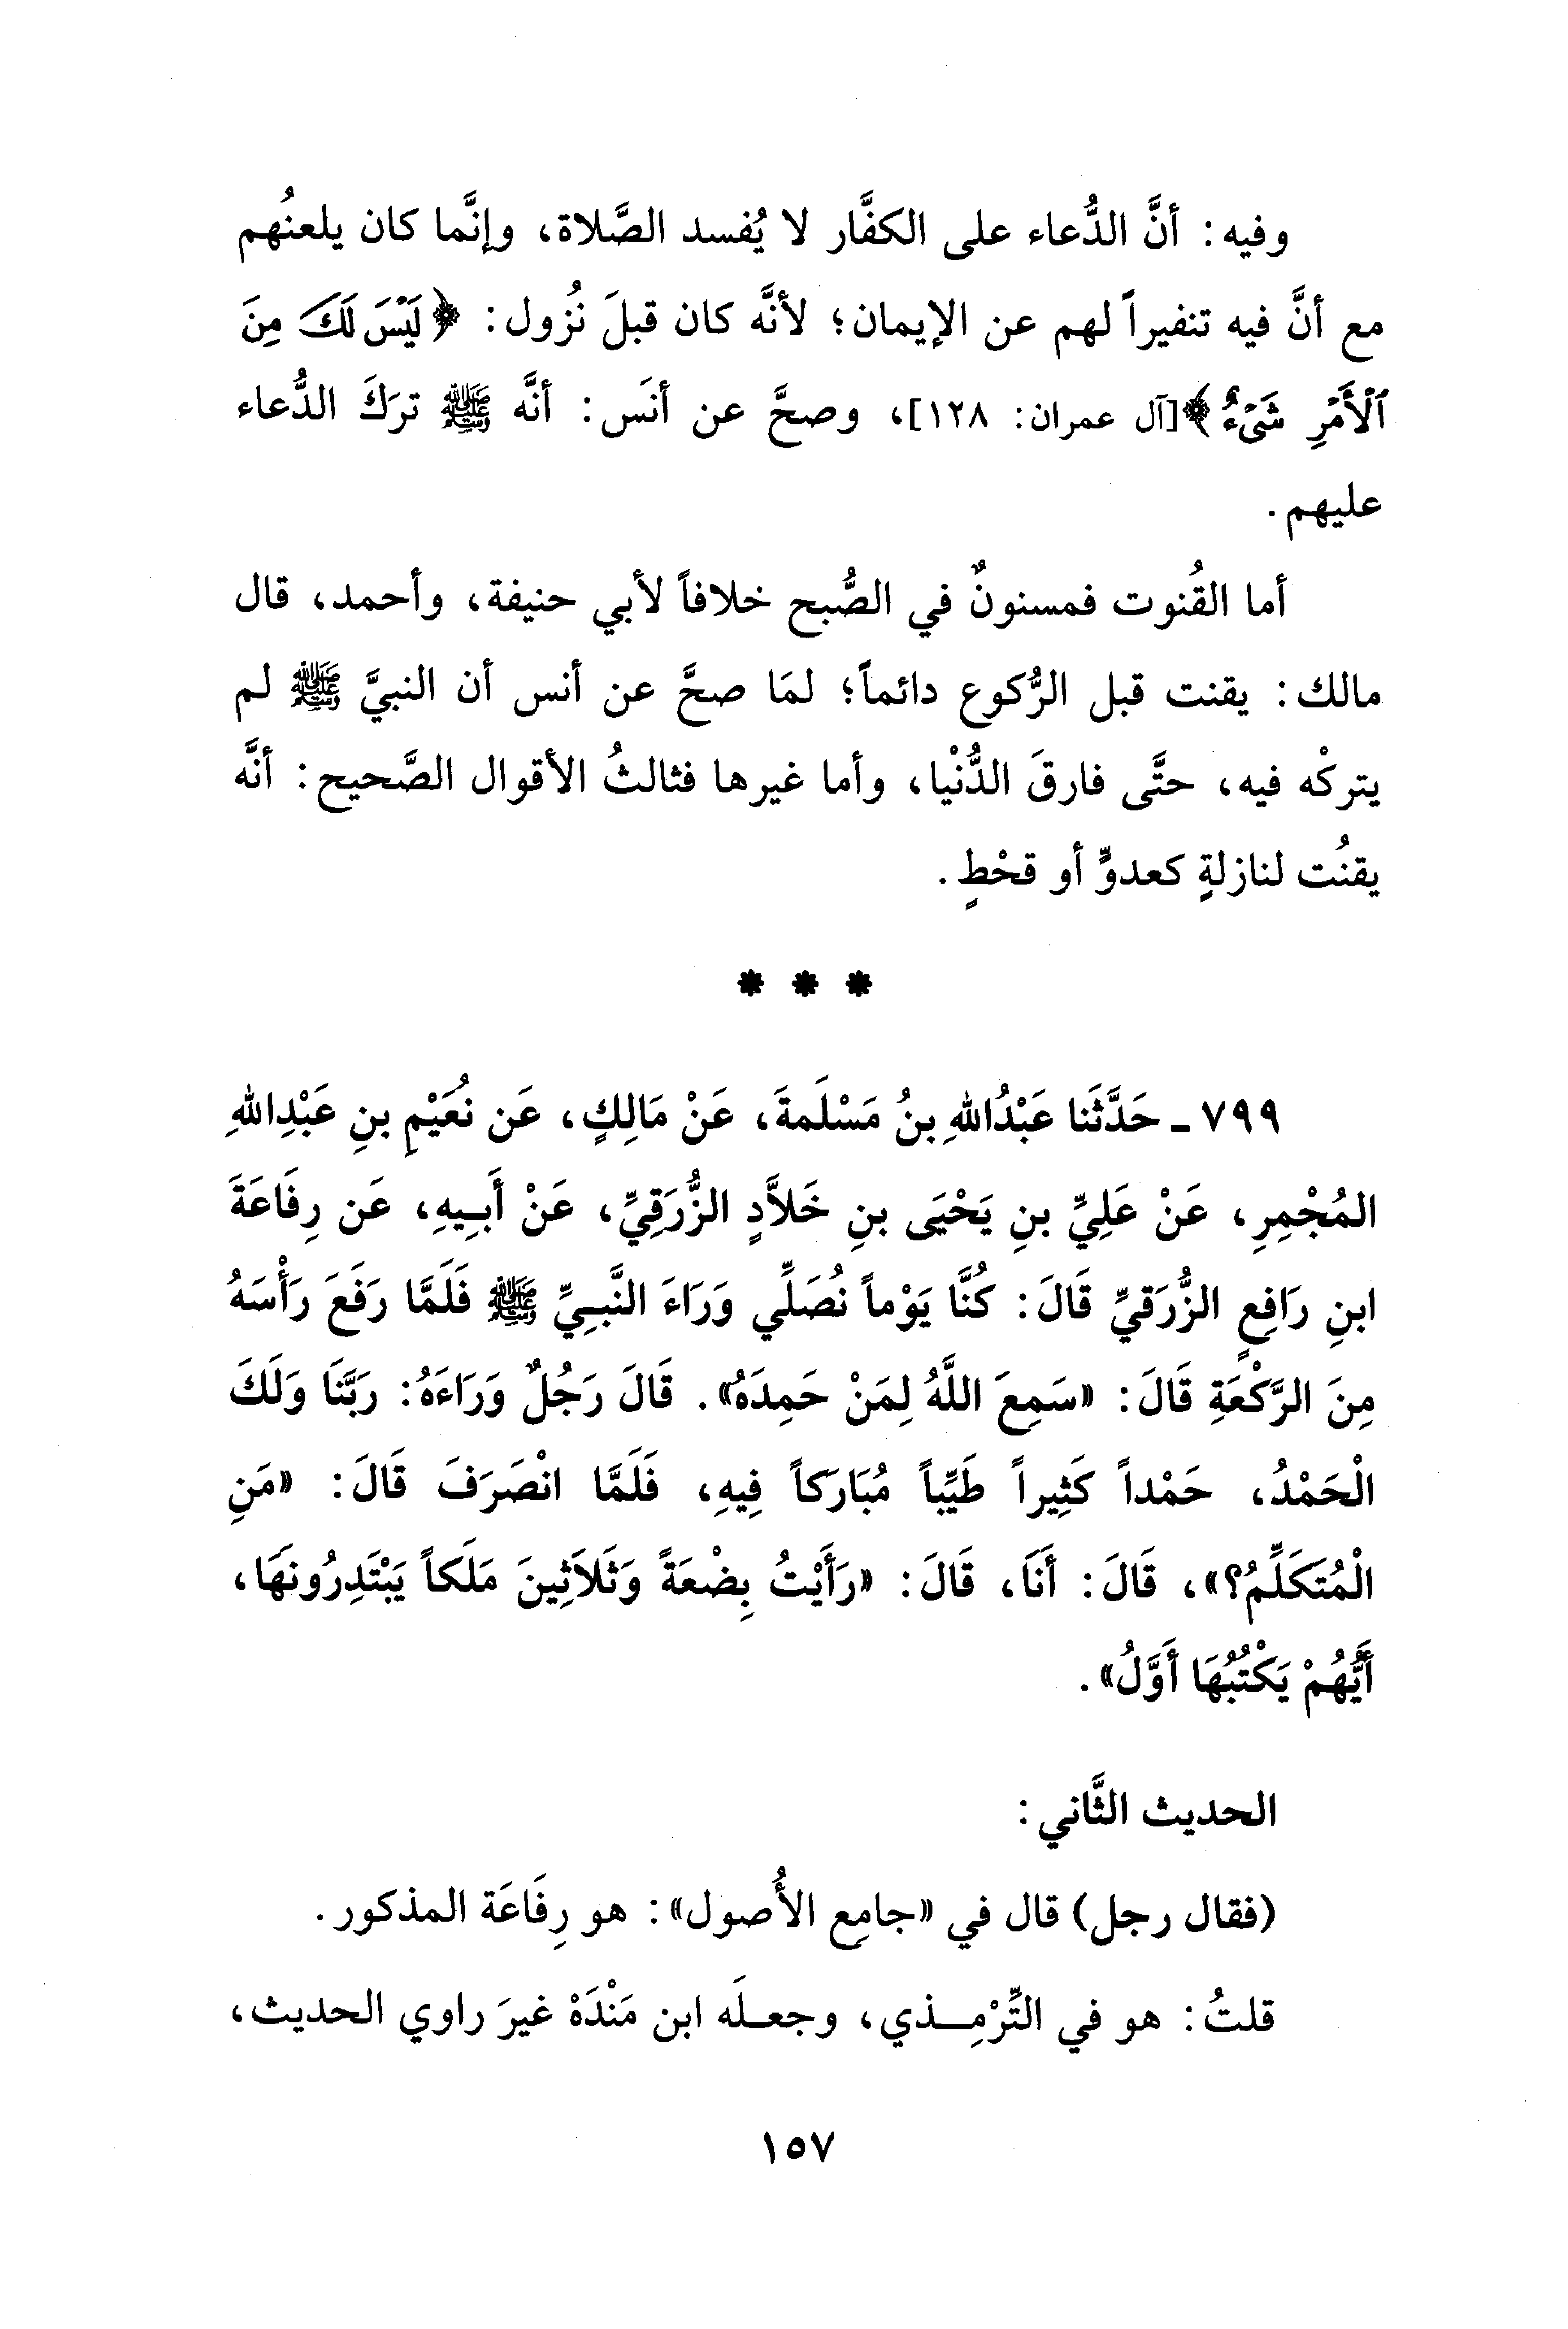 وفيه: أنَّ الدُّعاء على الكفَّار لا يُفسد الصَّلاة، وإنَّما كان يلعنُهم
مع أنَّ فيه تنفيراً لهم عن الإيمان؛ لأنَّه كان قبلَ نُزول: ﴿لَيْسَ لَكَ مِنَ
ٱلْأَمْرِ شَىْءٌ﴾[آل عمران: ١٢٨]، وصحَّ عن أنَس: أنَّه ﷺ ترَكَ الدُّعاء
عليهم.
أما القُنوت فمسنونٌ في الصُّبح خلافاً لأبي حنيفة، وأحمد، قال
مالك: يقنت قبل الرُّكوع دائماً؛ لمَا صحَّ عن أنس أن النبيَّ ﷺ لم
يتركْه فيه، حتَّى فارقَ الدُّنْيا، وأما غيرها فثالثُ الأقوال الصَّحيح: أنَّه
يقنُت لنازلةٍ كعدوٍّ أو قحْطٍ.
* * *
٧٩٩ - حَدَّثَنا عَبْدُاللهِ بنُ مَسْلَمةَ، عَنْ مَالِكٍ، عَن نُعَيْمِ بنِ عَبْدِاللهِ
المُجْمِرِ، عَنْ عَلِيِّ بنِ يَحْيَى بنِ خَلاَّدٍ الزُّرَقِيِّ، عَنْ أَبِيهِ، عَن رِفَاعَةَ
ابنِ رَافِعٍ الزُّرَقيِّ قَالَ: كُنَّا يَوْماً نُصَلِّي وَرَاءَ النَّبِيِّ ﷺ فَلَمَّا رَفَعَ رَأْسَهُ
مِنَ الرَّكْعَةِ قَالَ: «سَمِعَ اللَّهُ لِمَنْ حَمِدَهُ». قَالَ رَجُلٌ وَرَاءَهُ: رَبَّنَا وَلَكَ
الْحَمْدُ، حَمْداً كَثِيراً طَيِّباً مُبَارَكاً فِيهِ، فَلَمَّا انْصَرَفَ قَالَ: «مَنِ
الْمُتَكَلِّمُ؟»، قَالَ: أَنَا، قَالَ: «رَأَيْتُ بِضْعَةً وَثَلاَثِينَ مَلَكاً يَبْتَدِرُونَهَا،
أَيُّهُمْ يَكْتُبُهَا أَوَّلُ».
الحديث الثَّاني:
(فقال رجل) قال في «جامِع الأُصول»: هو رِفَاعَة المذكور.
قلتُ: هو في التِّرْمِـذي، وجعـلَه ابن مَنْدَهْ غيرَ راوي الحديث،
١٥٧